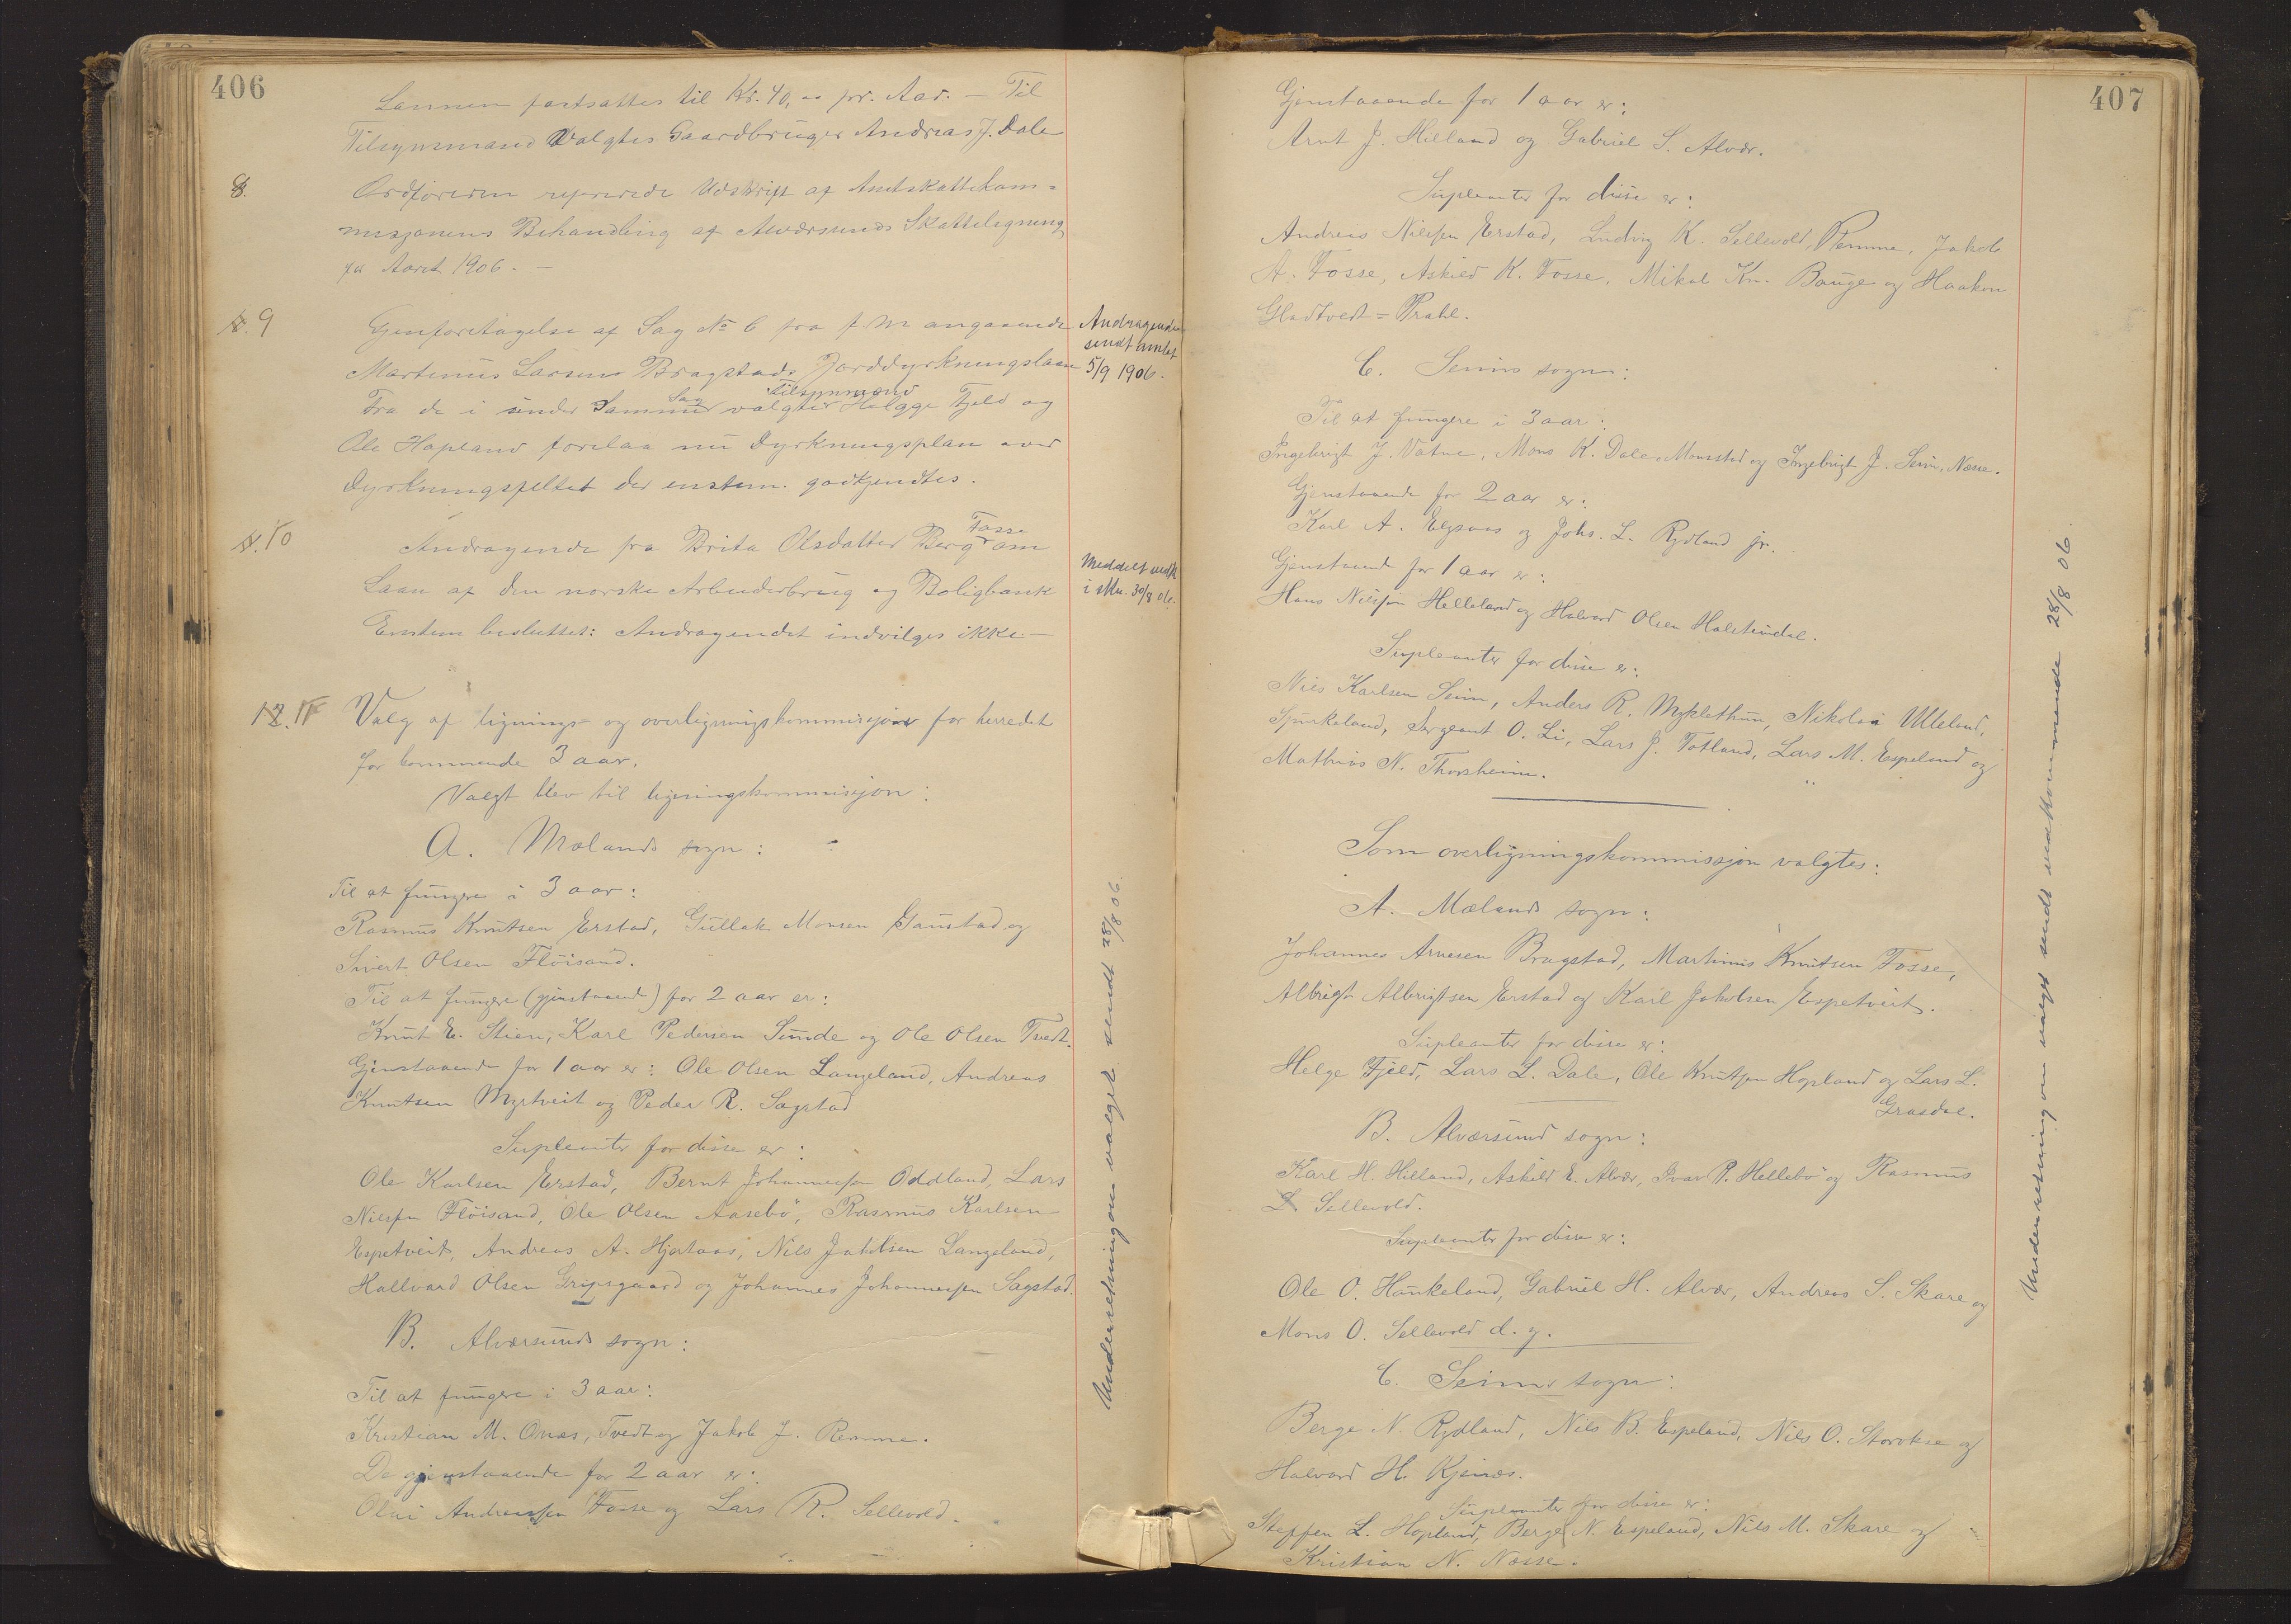 406
Lønnen fastsattes til Kr. 40,00 pr. Aar. — Til
Tilsynsmand valgtes Gaardbruger Andreas J. Dale
8.
Ordføreren refererede Udskrift af Amtskattekom-
misjonens Behandling af Alværsunds Skatteligning
for Aaret 1906. —
9
Genforetagelse af Sag No 6 fra f. M angaaende
Martinus Larsens Bragstads Jorddyrkningslaan
Fra de i under Samme Sag valgte Tilsynsmænd Helgge Fjeld og
Ole Hopland forelaa nu Dyrkningsplan over
Dyrkningsfeltet der enstem. godkjendtes.
Andragende
sendt amtet
5/9 1906.
10
Andragende fra Brita Olsdatter Berg Fosse om
Laan af den norske Arbeiderbrug og Boligbank
Enstem besluttet: Andragendet indvilges ikke —
Meddelt vedk
i Mu. 30/8 06.
12. 11
Valg af lignings- og overligningskommisjon for herredet
for kommende 3 aar.
Valgt blev til ligningskommisjon:
A. Mælands sogn:
Til at fungere i 3 aar:
Rasmus Knutsen Erstad, Gullak Monsen Gaustad og
Sivert Olsen Fløisand.
Til at fungere (gjenstaaende) for 2 aar er:
Knut E. Stien, Karl Pedersen Sunde og Ole Olsen Tvedt.
Gjenstaaende for 1 aar er: Ole Olsen Langeland, Andreas
Knutsen Myrtveit og Peder R. Sagstad
Supleanter for disse er:
Ole Karlsen Erstad, Bernt Johannessen Oddland, Lars
Nilssen Fløisand, Ole Olsen Aasebø, Rasmus Karlsen
Espetveit, Andreas A. Hjertaas, Nils Jakobsen Langeland,
Hallvard Olsen Gripsgaard og Johannes Johannessen Sagstad.
B. Alværsunds sogn:
Til at fungere i 3 aar:
Kristian M. Onæs, Tvedt og Jakob J. Remme.
De gjenstaaende for 2 aar er:
Olai Andreassen Fosse og Lars R. Sellevold.
Underretning om valget sendt 28/8 06.
407
Gjenstaaende for 1 aar er:
Arnt J. Hilland og Gabriel S. Alvær.
Supleanter for disse er:
Andreas Nilssen Erstad, Ludvig K. Sellevold, Remme, Jakob
A. Fosse, Askild K. Fosse, Mikal Kn. Bauge og Haakon
Gladtvedt = Prahl.
C. Seims sogn:
Til at fungere i 3 aar:
Ingebrigt J. Vatne, Mons K. Dale, Monsstad og Ingebrigt J. Seim, Næsse.
Gjenstaaende for 2 aar er:
Karl A. Elgsaas og Johs. L. Rydland jr.
Gjenstaaende for 1 aar er:
Hans Nilssen Helleland og Halvard Olsen Halstendal.
Supleanter for disse er:
Nils Karlsen Seim, Anders R. Myklethun, Nikolai Ulleland,
Spurkeland, Sergeant O. Li, Lars J. Totland, Lars M. Espeland og
Mathias N. Thorsheim.
Som overligningskommissjon valgtes:
A. Mælands sogn:
Johannes Arnesen Bragstad, Martinus Knutsen Fosse,
Albrigt Albrigtsen Erstad og Karl Jakobsen Espetveit.
Supleanter for disse er:
Helge Fjeld, Lars L. Dale, Ole Knutsen Hopland og Lars L.
Grasdal.
B. Alværsund sogn:
Karl H. Hilland, Askild E. Alvær, Ivar R. Hellebø og Rasmus
L Sellevold.
Supleanter for disse er:
Ole O. Haukeland, Gabriel H. Alvær, Andreas S. Skare og
Mons O. Sellevold d. y.
C. Seims sogn:
Berge N. Rydland, Nils B. Espeland, Nils O. Storokse og
Halvard H. Kjenæs.
Supleanter for disse er:
Steffen L. Hopland, Berge N. Espeland, Nils M. Skare og
Kristian N. Næsse.
Underretning om valget sendt vedkommende 28/8 06.